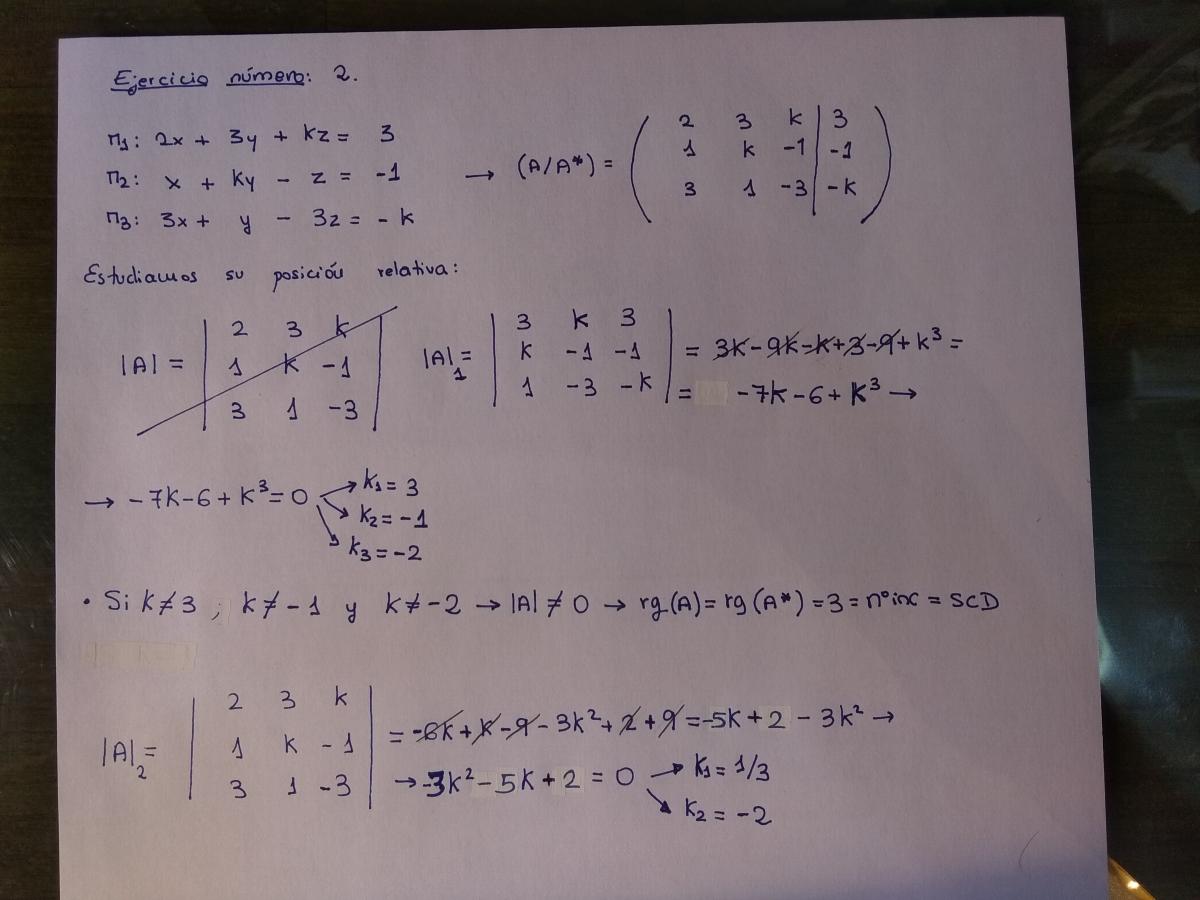 Ejercicio número: 2.
π1: 2x + 3y + kz = 3
π2: x + ky - z = -1
π3: 3x + y - 3z = -k
→ (A/A*) =
2 3 k | 3
1 k -1 | -1
3 1 -3 | -k
Estudiamos su posición relativa:
|A| =
2 3 k
1 k -1
3 1 -3
|A|₁ =
3 k 3
k -1 -1
1 -3 -k
= 3k - 9k - k + 3 - 9 + k³ =
= -7k - 6 + k³ →
→ -7k - 6 + k³ = 0
k₁ = 3
k₂ = -1
k₃ = -2
• Si k ≠ 3 ; k ≠ -1 y k ≠ -2 → |A| ≠ 0 → rg(A) = rg(A*) = 3 = nº inc = SCD
|A|₂ =
2 3 k
1 k -1
3 1 -3
= -6k + k - 9 - 3k² + 2 + 9 = -5k + 2 - 3k² →
→ -3k² - 5k + 2 = 0
k₁ = 1/3
k₂ = -2